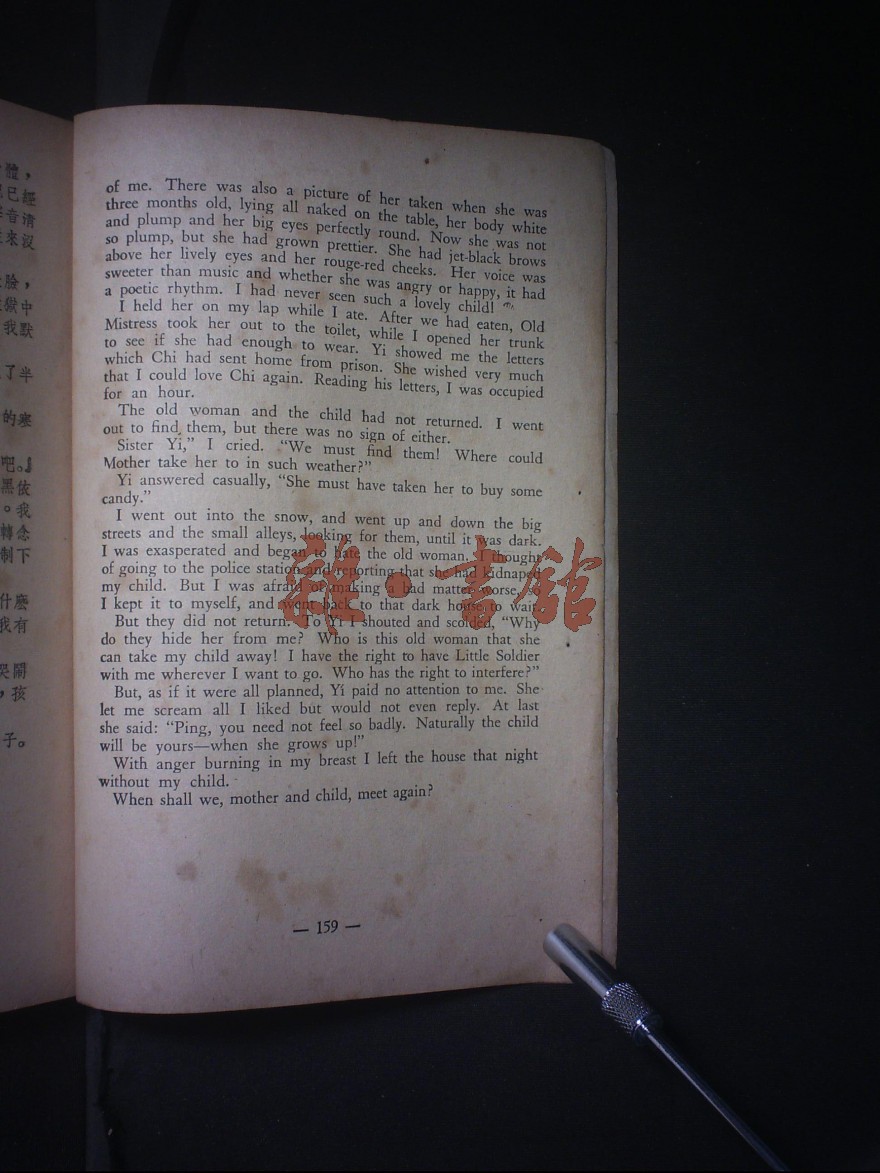 體，
已經
音清
來沒
臉，
獄中
我默
了半
的寒
吧。』
黑依
。我
轉念
制下
什麽
我有
哭鬧
，孩
子。
of me. There was also a picture of her taken when she was
three months old, lying all naked on the table, her body white
and plump and her big eyes perfectly round. Now she was not
so plump, but she had grown prettier. She had jet-black brows
above her lively eyes and her rouge-red cheeks. Her voice was
sweeter than music and whether she was angry or happy, it had
a poetic rhythm. I had never seen such a lovely child!
I held her on my lap while I ate. After we had eaten, Old
Mistress took her out to the toilet, while I opened her trunk
to see if she had enough to wear. Yi showed me the letters
which Chi had sent home from prison. She wished very much
that I could love Chi again. Reading his letters, I was occupied
for an hour.
The old woman and the child had not returned. I went
out to find them, but there was no sign of either.
Sister Yi,” I cried. “We must find them! Where could
Mother take her to in such weather?”
Yi answered casually, “She must have taken her to buy some
candy.”
I went out into the snow, and went up and down the big
streets and the small alleys, looking for them, until it was dark.
I was exasperated and began to hate the old woman. I thought
of going to the police station and reporting that she had kidnaped
my child. But I was afraid of making a bad matter worse, so
I kept it to myself, and went back to that dark house to wait.
But they did not return. To Yi I shouted and scolded, “Why
do they hide her from me? Who is this old woman that she
can take my child away! I have the right to have Little Soldier
with me wherever I want to go. Who has the right to interfere?”
But, as if it were all planned, Yi paid no attention to me. She
let me scream all I liked but would not even reply. At last
she said: “Ping, you need not feel so badly. Naturally the child
will be yours—when she grows up!”
With anger burning in my breast I left the house that night
without my child.
When shall we, mother and child, meet again?
— 159 —
雜·書館